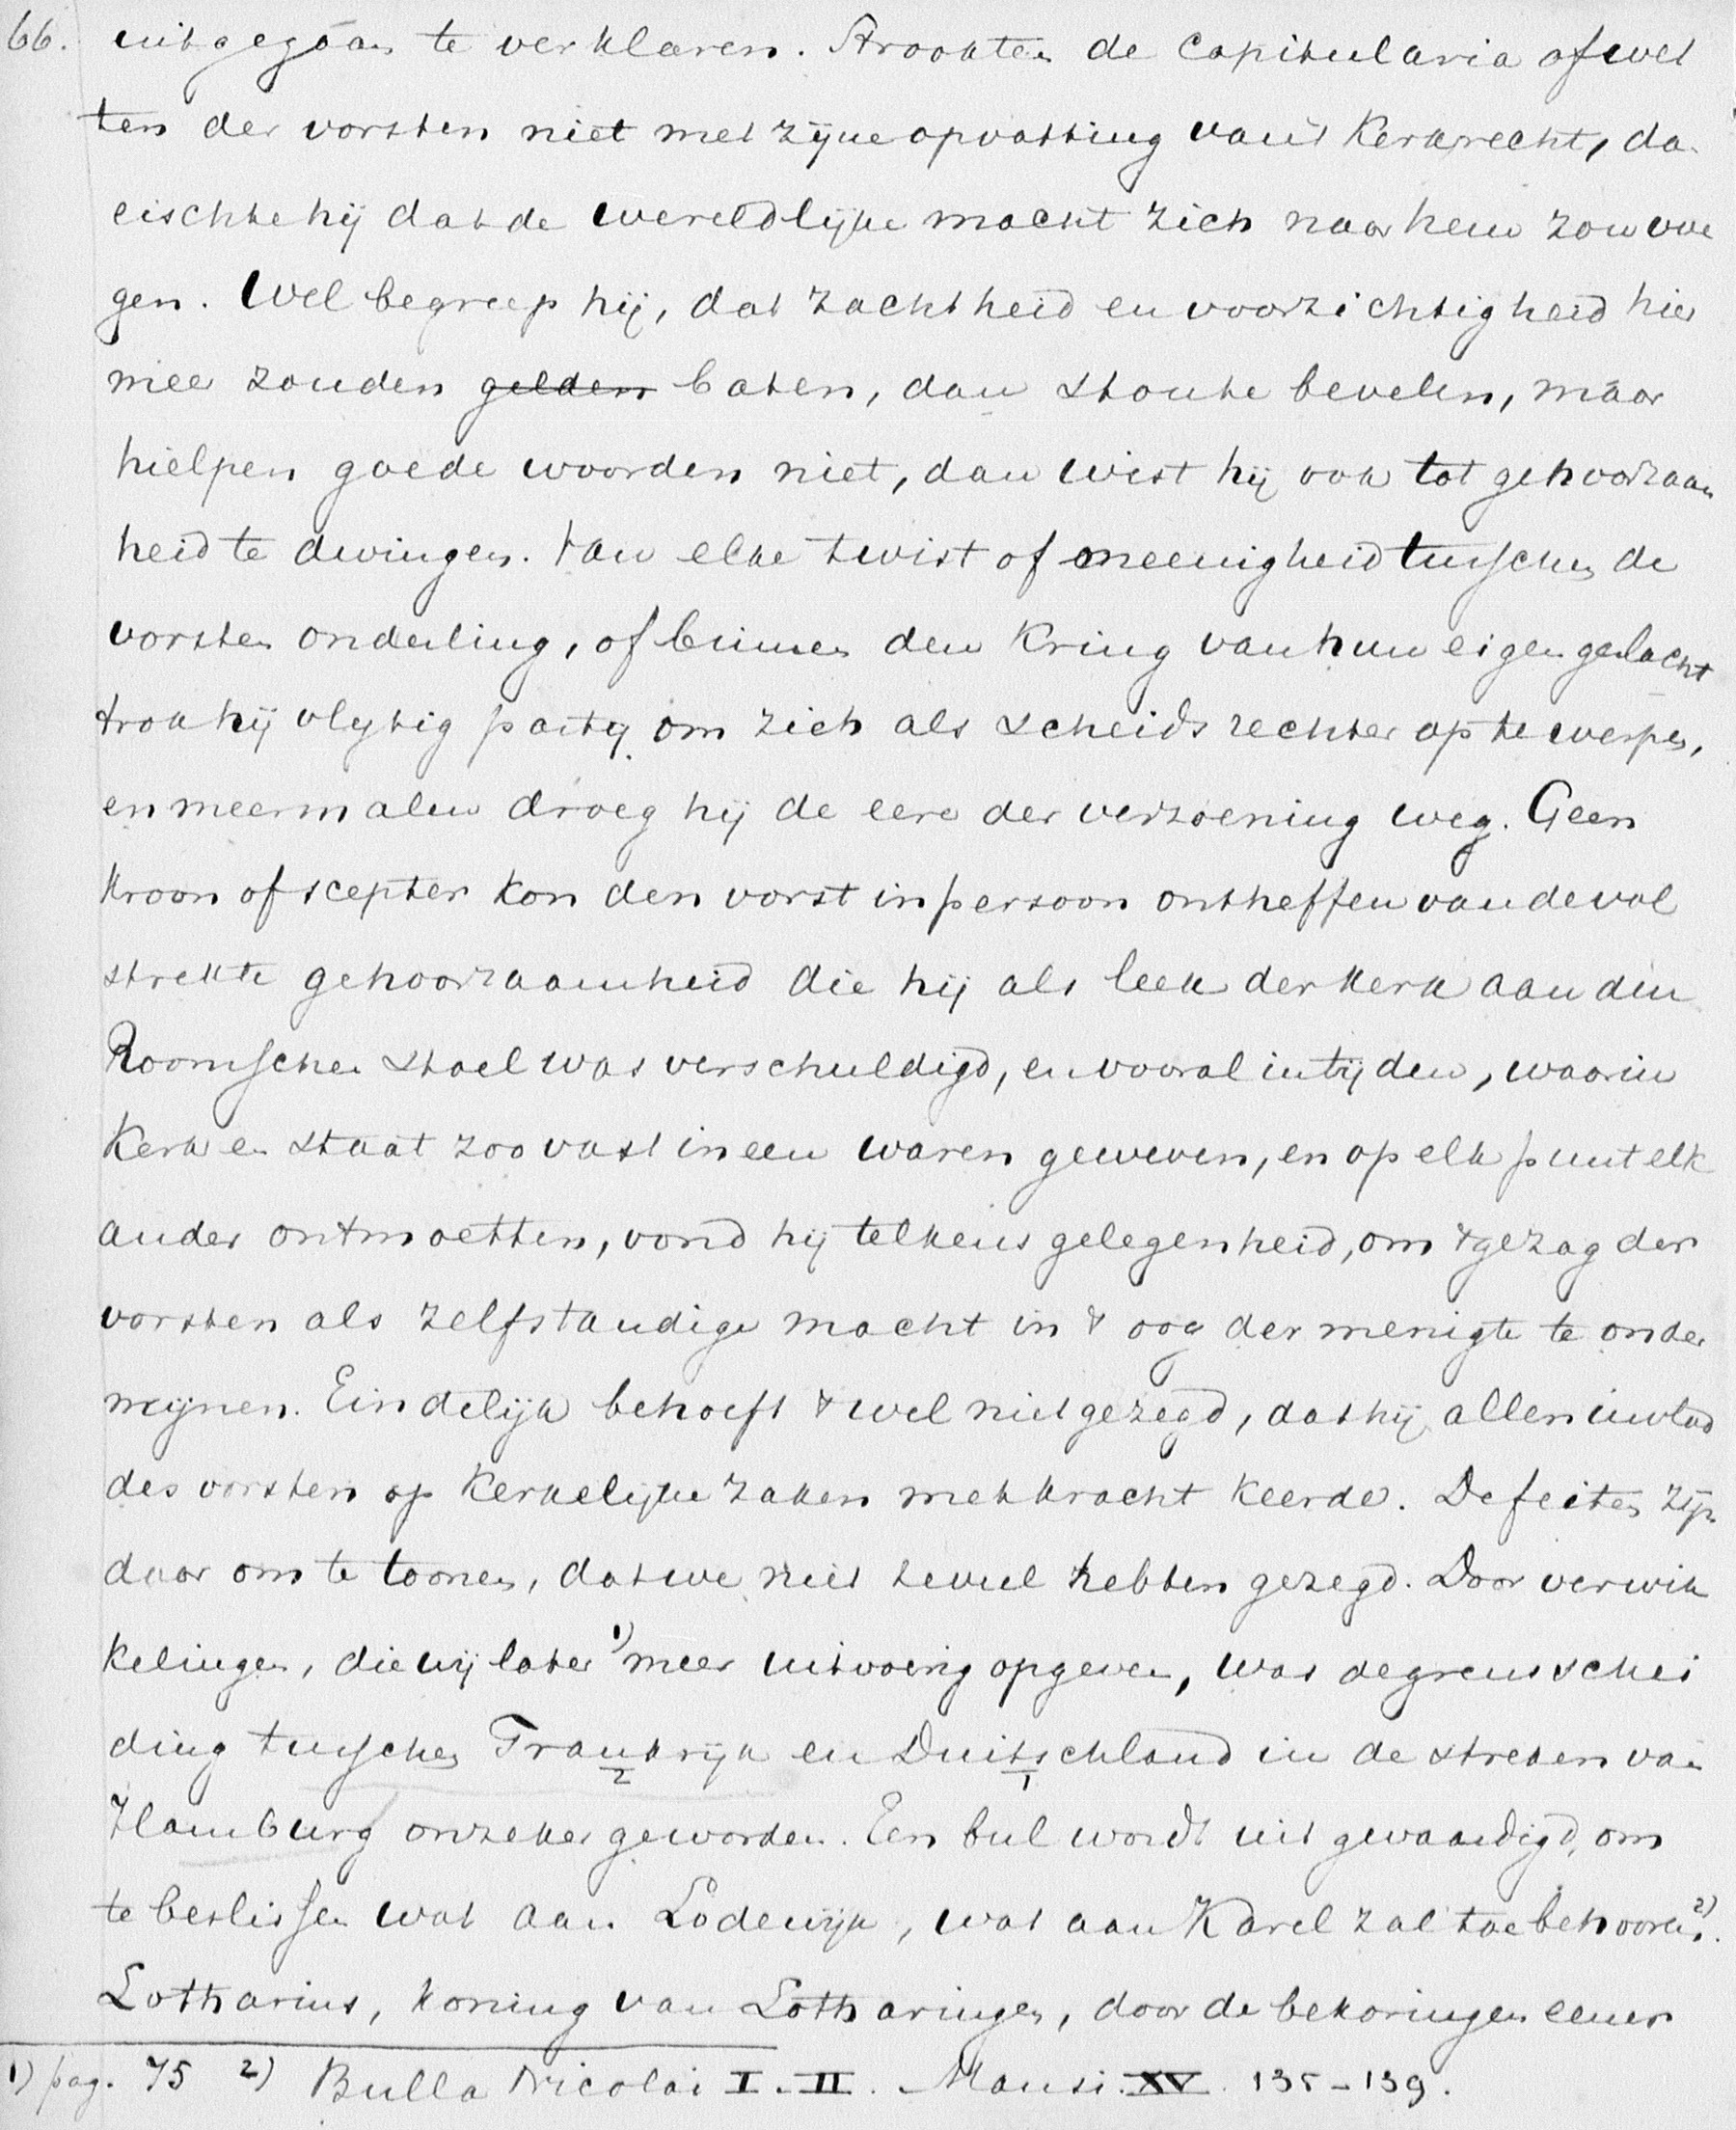 66. uitgegaan te verklaren. Strookten de Capitularia of wet
ten der vorsten niet met zijne opvatting van 't Kerkrecht, dan
eischte hij dat de wereldlijke macht zich naar hem zou voe
gen. Wel begreep hij, dat zachtheid en voorzichtigheid hier
meer zouden gelden baten, dan stoute bevelen, maar
hielpen goede woorden niet, dan wist hij ook tot gehoorzaam
heid te dwingen. Van elke twist of oneenigheid tusschen de
vorsten onderling, of binnen den Kring van hun eigen geslacht
trok hij vlytig party om zich als scheidsrechter op te werpen,
en meermalen droeg hij de eere der verzoening weg. Geen
Kroon of scepter kon den vorst in persoon ontheffen van de vol
strekte gehoorzaamheid die hij als leek der kerk aan den
Roomschen stoel was verschuldigd, en vooral in tijden, waarin
Kerk en staat zoo vast in een waren geweven, en op elk punt elk
ander ontmoetten, vond hij telkens gelegenheid, om 't gezag der
vorsten als zelfstandige macht in 't oog der menigte te onder
mijnen. Eindelijk behoeft 't wel niet gezegd, dat hij allen invloed
des vorsten op Kerkelijke zaken met kracht keerde. De feiten zijn
daar om te toonen, dat we niet teveel hebben gezegd. Door verwik
kelingen, die wij later 1) meer uitvoerig opgeven, was de grensschei
ding tusschen Frankrijk en Duitschland in de streken van
2 1
Hamburg onzeker geworden. Een bul wordt uitgevaardigd, om
te beslissen wat aan Lodewijk, wat aan Karel zal toebehooren 2).
Lotharius, koning van Lotharingen, door de bekoringen eener
1) pag. 75 2) Bulla Nicolai I. II. Mansi. XV. 135-139.